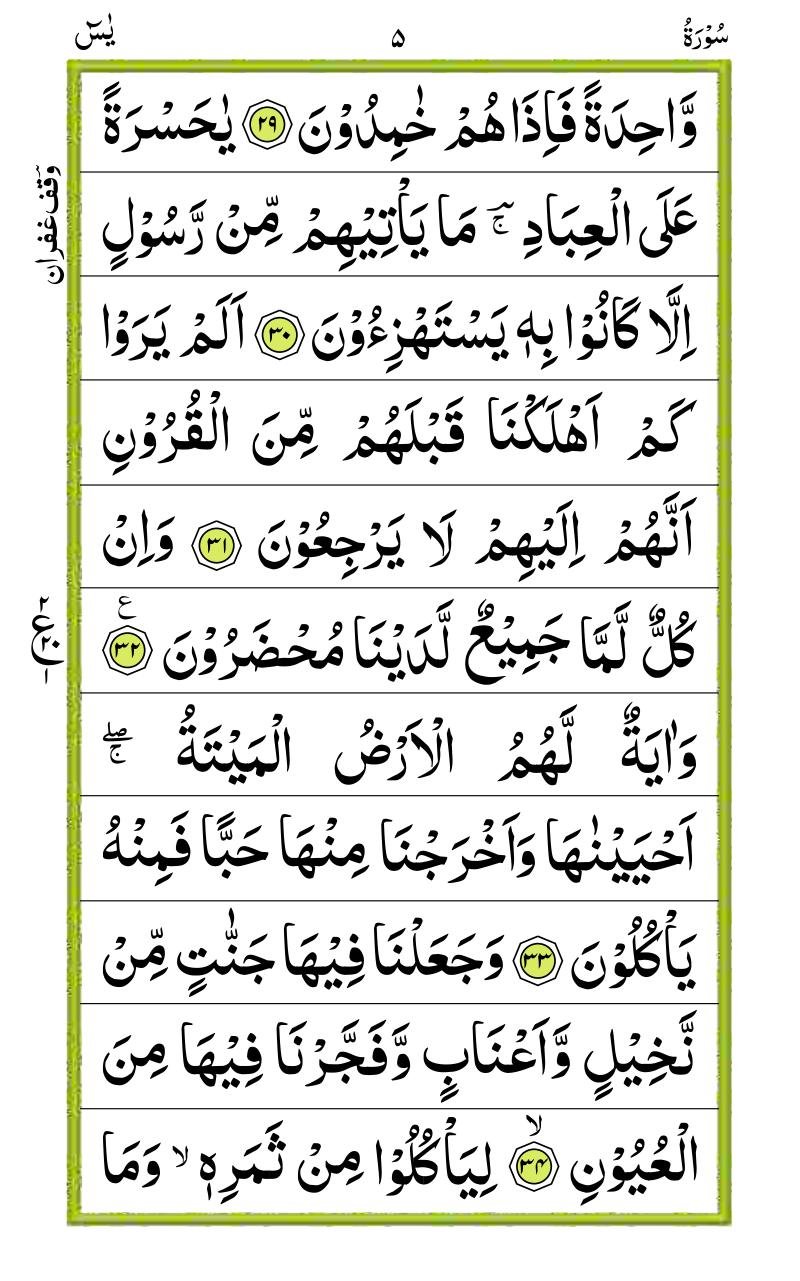 سُوْرَةُ ۵ يٰسٓ
وَّاحِدَةً فَاِذَا هُمْ خٰمِدُوْنَ ۲۹ يٰحَسْرَةً
عَلَى الْعِبَادِ ۚ مَا يَاْتِيْهِمْ مِّنْ رَّسُوْلٍ
وقف غفران
اِلَّا كَانُوْا بِهٖ يَسْتَهْزِءُوْنَ ۳۰ اَلَمْ يَرَوْا
كَمْ اَهْلَكْنَا قَبْلَهُمْ مِّنَ الْقُرُوْنِ
اَنَّهُمْ اِلَيْهِمْ لَا يَرْجِعُوْنَ ۳۱ وَاِنْ
كُلٌّ لَّمَّا جَمِيْعٌ لَّدَيْنَا مُحْضَرُوْنَ ۳۲ ع
وَاٰيَةٌ لَّهُمُ الْاَرْضُ الْمَيْتَةُ ۖۚ
اَحْيَيْنٰهَا وَاَخْرَجْنَا مِنْهَا حَبًّا فَمِنْهُ
يَاْكُلُوْنَ ۳۳ وَجَعَلْنَا فِيْهَا جَنّٰتٍ مِّنْ
نَّخِيْلٍ وَّاَعْنَابٍ وَّفَجَّرْنَا فِيْهَا مِنَ
الْعُيُوْنِ ۙ ۳۴ لِيَاْكُلُوْا مِنْ ثَمَرِهٖ ۙ وَمَا